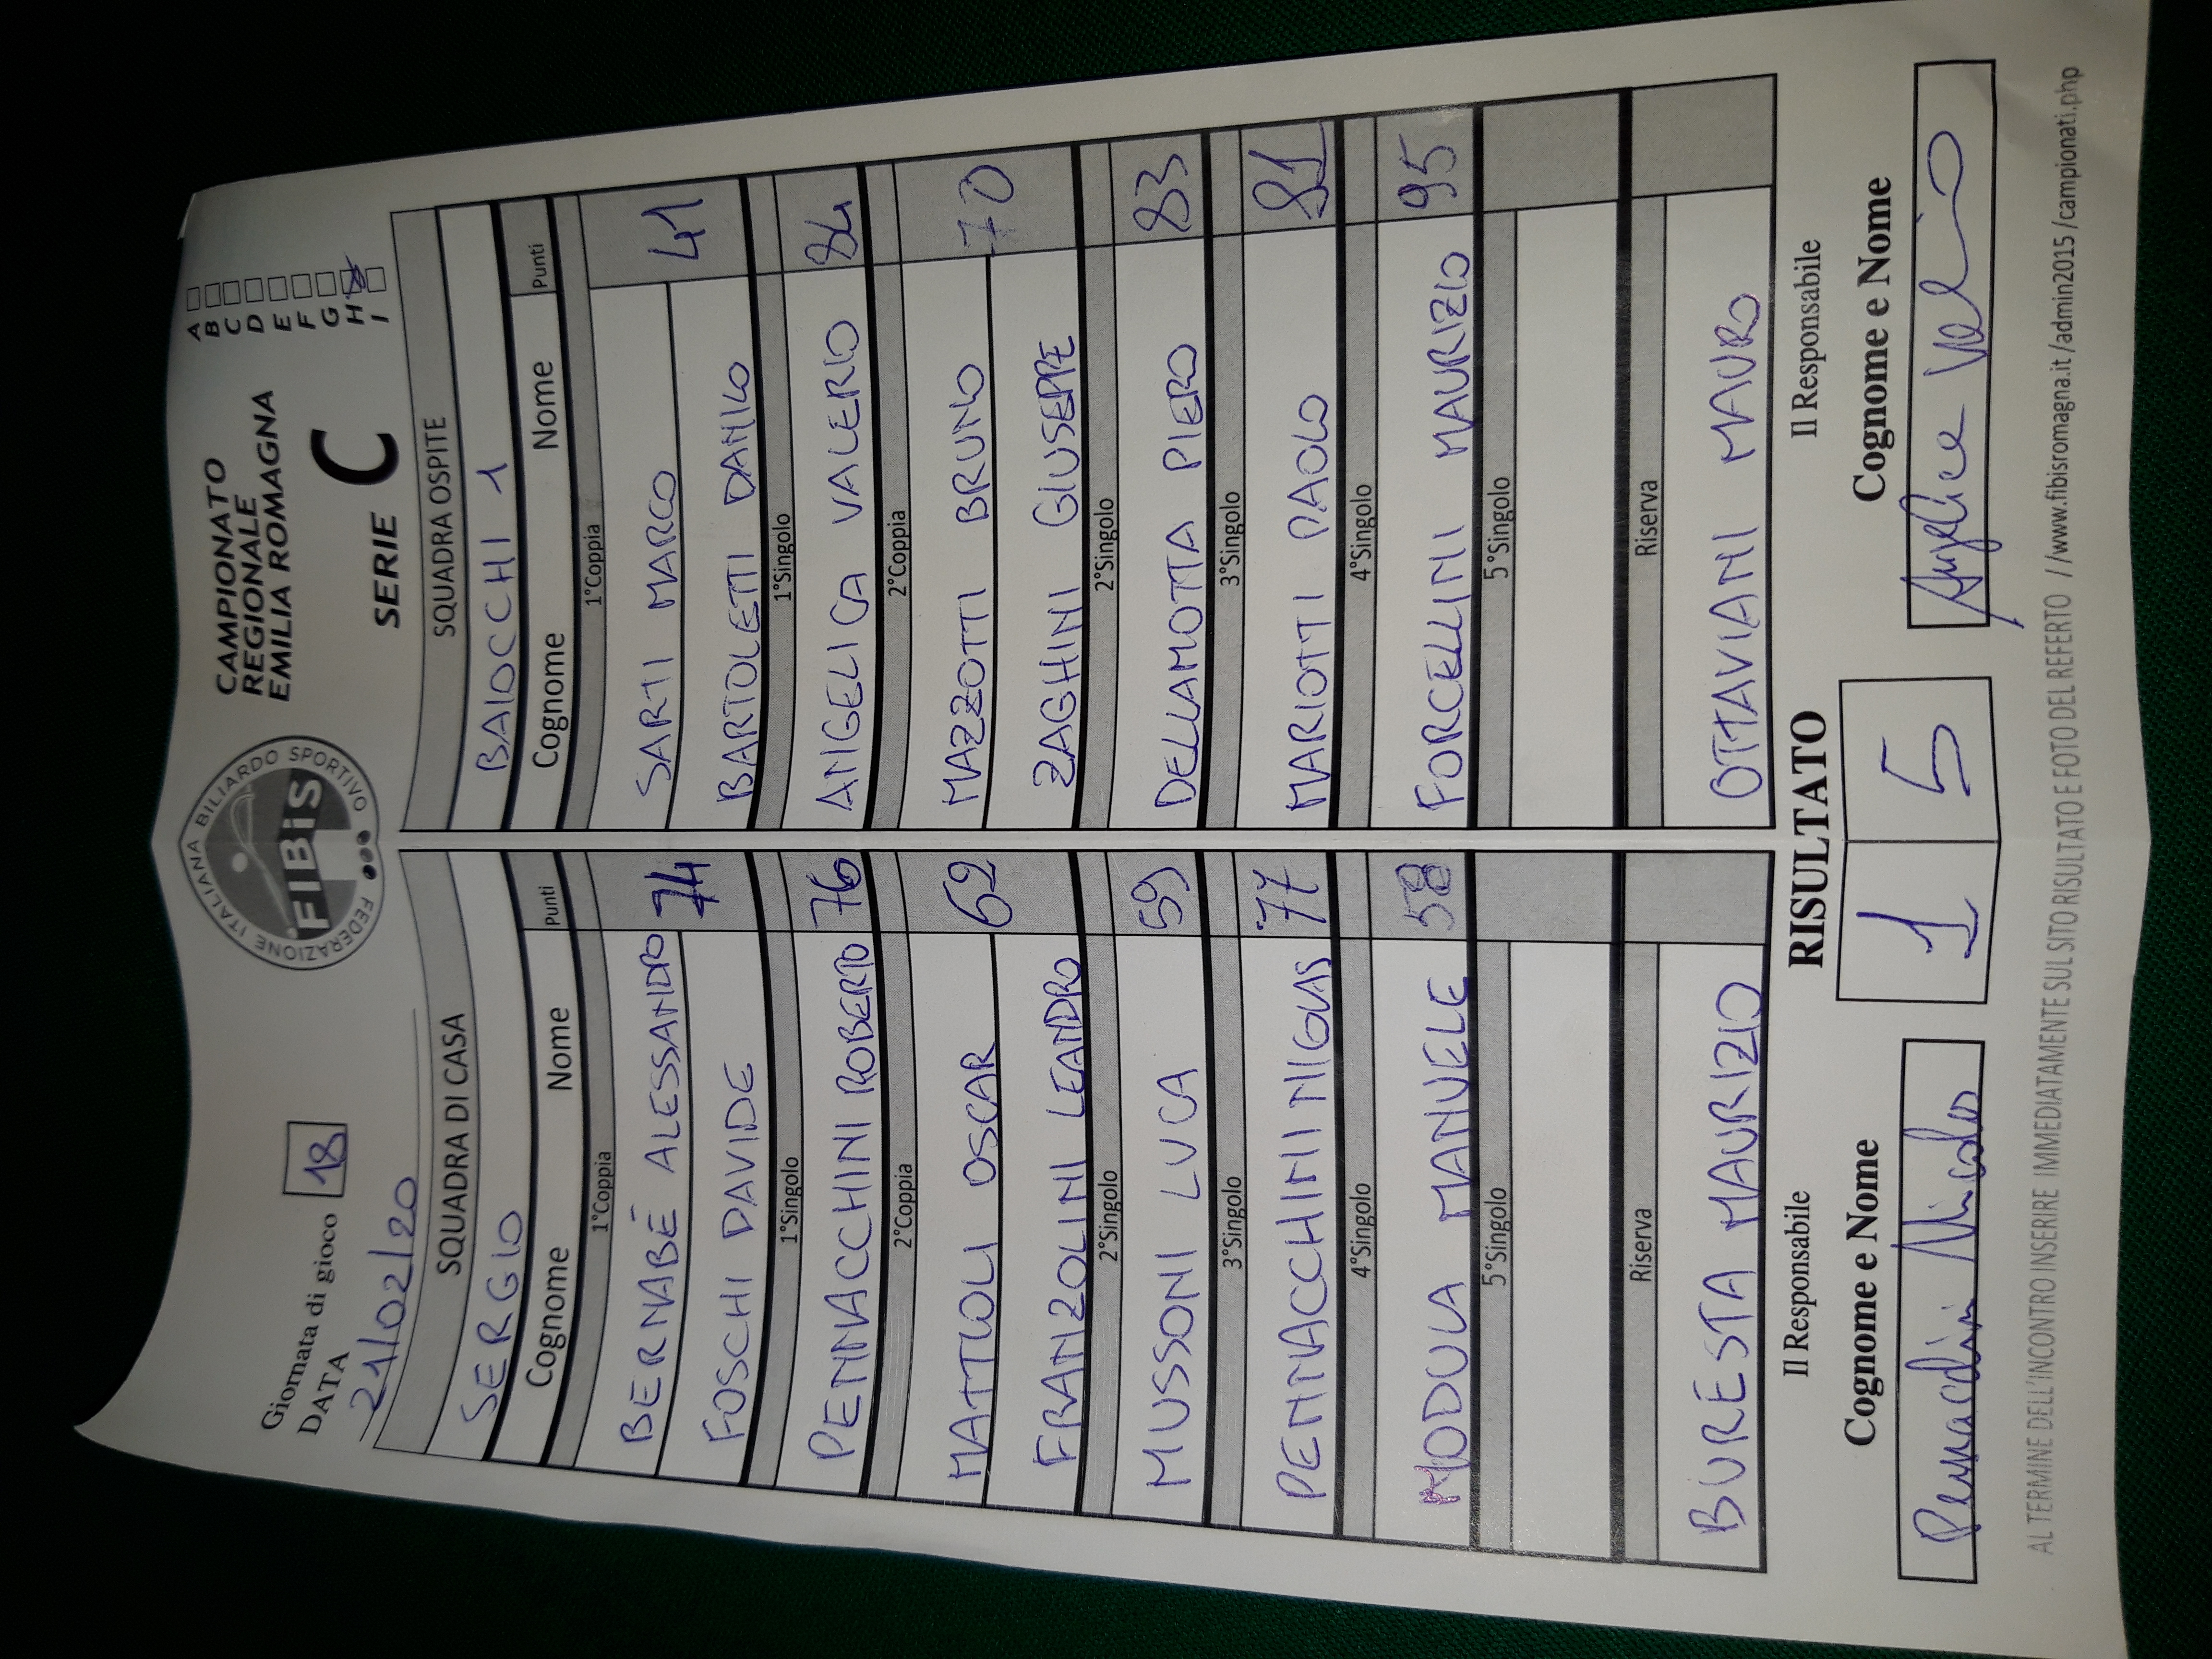 Giornata di gioco 18
DATA
21/02/20
FEDERAZIONE ITALIANA BILIARDO SPORTIVO
FIBiS
CAMPIONATO
REGIONALE
EMILIA ROMAGNA
SERIE C
A
B
C
D
E
F
G
H
I
SQUADRA DI CASA
SERGIO
Cognome Nome Punti
1°Coppia
BERNABÈ ALESSANDRO 74
FOSCHI DAVIDE
1°Singolo
PENNACCHINI ROBERTO 76
2°Coppia
MATTIOLI OSCAR 62
FRANZOLINI LEANDRO
2°Singolo
MUSSONI LUCA 59
3°Singolo
PENNACCHINI 77
4°Singolo
MODULA MANUELE 58
5°Singolo
Riserva
BURESTA MAURIZIO
SQUADRA OSPITE
BAIOCCHI 1
Cognome Nome Punti
1°Coppia
SARTI MARCO 41
BARTOLETTI DANILO
1°Singolo
ANGELICA VALERIO 84
2°Coppia
MAZZOTTI BRUNO 70
ZAGHINI GIUSEPPE
2°Singolo
DELLAMOTTA PIERO 83
3°Singolo
MARIOTTI PAOLO 81
4°Singolo
FORCELLINI MAURIZIO 95
5°Singolo
Riserva
OTTAVIANI MAURO
Il Responsabile RISULTATO Il Responsabile
Cognome e Nome 1 5 Cognome e Nome
Pennacchini Nicolas
Angelica Valerio
AL TERMINE DELL'INCONTRO INSERIRE IMMEDIATAMENTE SUL SITO RISULTATO E FOTO DEL REFERTO //www.fibisromagna.it /admin2015 /campionati.php